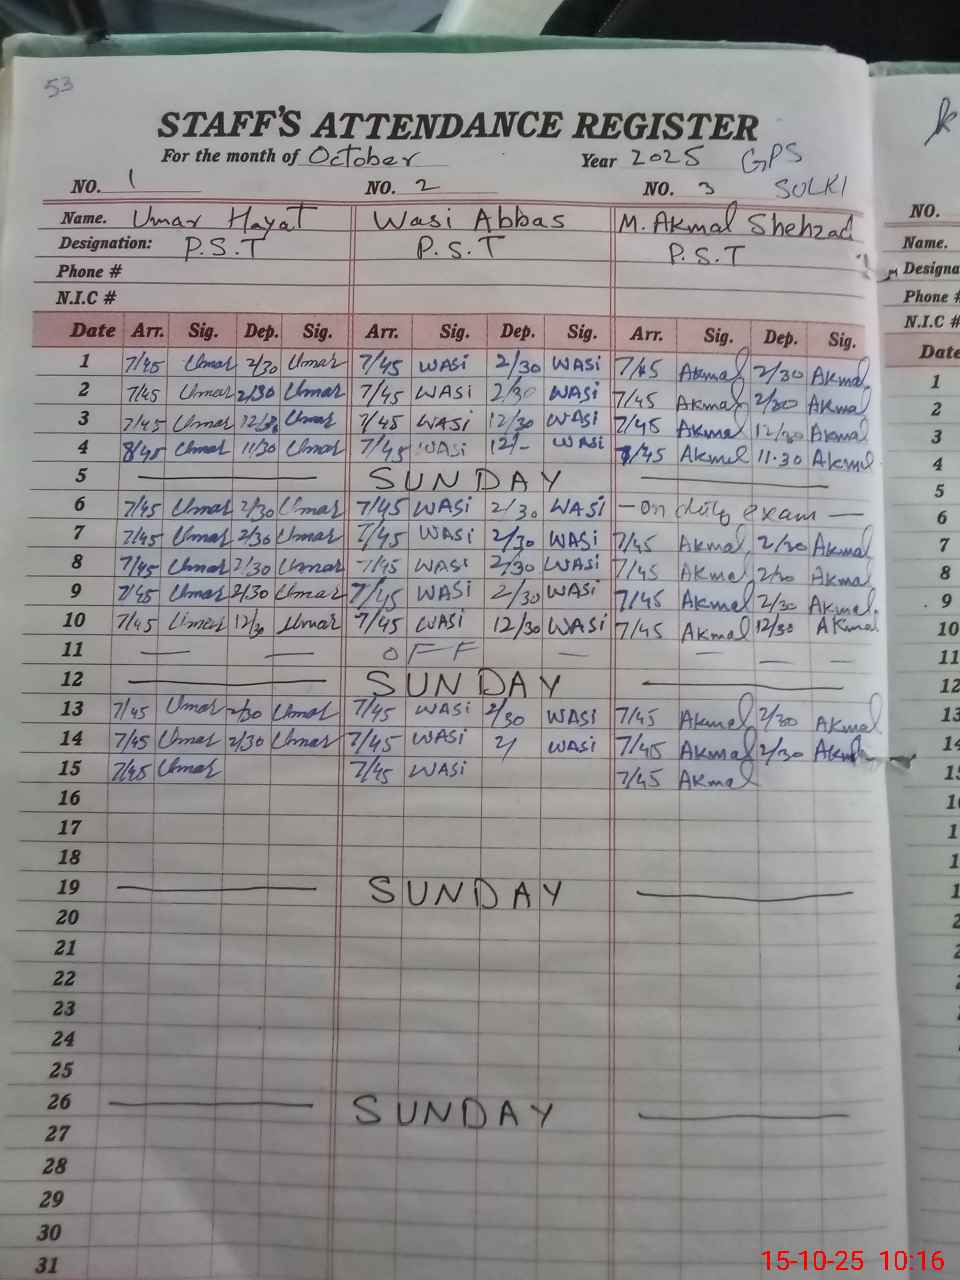 53
STAFF'S ATTENDANCE REGISTER
For the month of October Year 2025 GPS
NO. 1 NO. 2 NO. 3 SULKI
Name. Umar Hayat Wasi Abbas M. Akmal Shehzad
Designation: P.S.T P.S.T P.S.T
Phone #
N.I.C #
Date Arr. Sig. Dep. Sig. Arr. Sig. Dep. Sig. Arr. Sig. Dep. Sig.
1 7/45 Umar 2/30 Umar 7/45 WASi 2/30 WASi 7/45 Akmal 2/30 Akmal
2 7/45 Umar 2/30 Umar 7/45 WASi 2/30 WASi 7/45 Akmal 2/30 Akmal
3 7/45 Umar Umar 7/45 WASi 12/30 WASi 7/45 Akmal 12/30 Akmal
4 8/45 Umar 11/30 Umar 7/45 WASi 12/- WASi 45 Akmal 11.30 Akmal
5 SUNDAY
6 7/45 Umar 2/30 Umar 7/45 WASi 2/30 WASi - on duty exam -
7 7/45 Umar 2/30 Umar 7/45 WASi 2/30 WASi 7/45 Akmal 2/30 Akmal
8 7/45 Umar 2/30 Umar 7/45 WASi 2/30 WASi 7/45 Akmal 2/30 Akmal
9 7/45 Umar 2/30 Umar 7/45 WASi 2/30 WASi 7/45 Akmal 2/30 Akmal
10 7/45 Umar 12/30 Umar 7/45 WASi 12/30 WASi 7/45 Akmal 12/30 Akmal
11 — — OFF — — — —
12 SUNDAY
13 7/45 Umar 2/30 Umar 7/45 WASi 2/30 WASi 7/45 Akmal 2/30 Akmal
14 7/45 Umar 2/30 Umar 7/45 WASi 2/ WASi 7/45 Akmal 2/30 Akmal
15 7/45 Umar 7/45 WASi 7/45 Akmal
16
17
18
19 SUNDAY
20
21
22
23
24
25
26 SUNDAY
27
28
29
30
31
NO.
Name.
Designa
Phone #
N.I.C #
Date
1
2
3
4
5
6
7
8
9
10
11
12
13
14
15-10-25 10:16